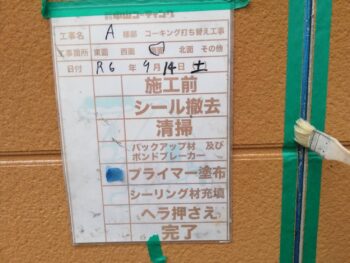 工事名 A 様邸 コーキング打ち替え工事
工事箇所 東面 西面 北面 その他
日付 R6 年 9月 14日 土
施工前
シール撤去
清掃
バックアップ材 及び
ボンドブレーカー
プライマー塗布
シーリング材充填
ヘラ押さえ
完了